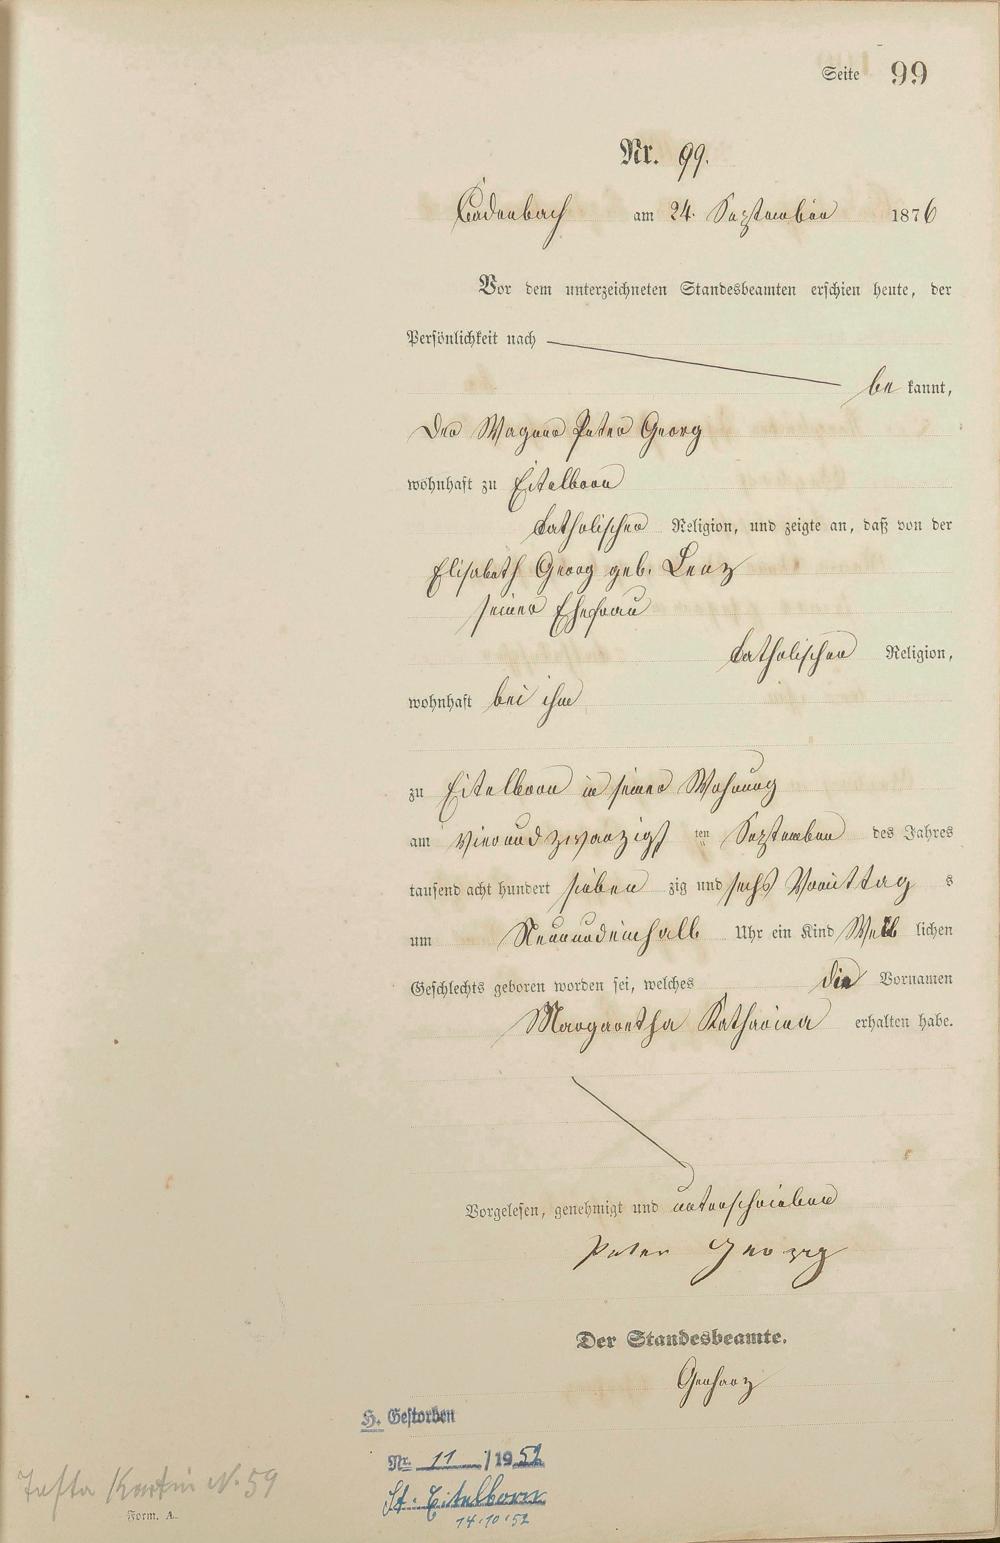 Seite 99
Nr. 99.
Cadenbach am 24. September 1876
Vor dem unterzeichneten Standesbeamten erschien heute, der
Persönlichkeit nach
be kannt,
der Wagner Peter Georg
wohnhaft zu Eitelborn
katholischer Religion, und zeigte an, daß von der
Elisabeth Georg geb. Lenz
seiner Ehefrau
katholischer Religion,
wohnhaft bei ihm
zu Eitelborn in seiner Wohnung
am vierundzwanzigs ten September des Jahres
tausend acht hundert sieben zig und sechs Vormittag s
um Neunundeinhalb Uhr ein Kind Weib lichen
Geschlechts geboren worden sei, welches die Vornamen
Margaretha Katharina erhalten habe.
Vorgelesen, genehmigt und unterschrieben
Peter Georg
Der Standesbeamte.
H. Gestorben
Nr. 11 /1952
St. Eitelborn
14.10.52
N. 59
Form. A.